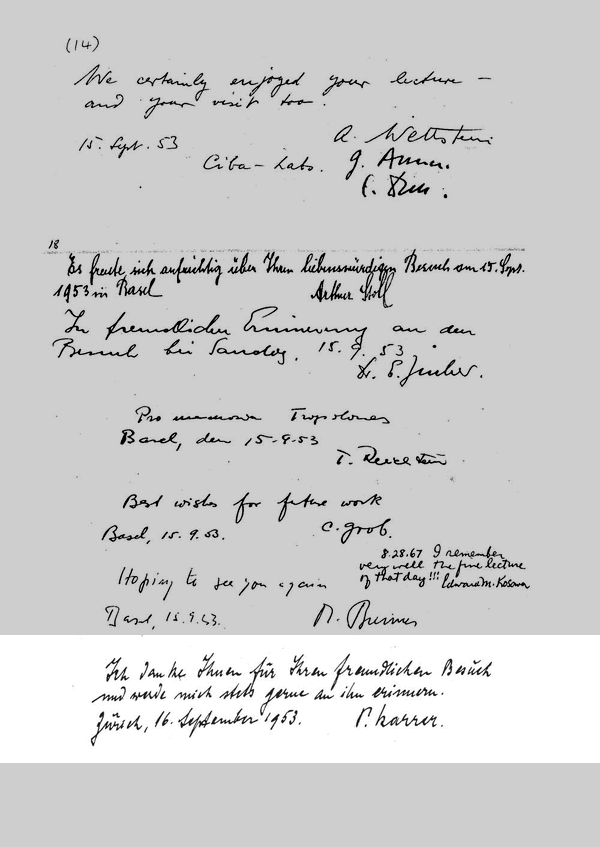 (14)
We certainly enjoyed your lecture –
and your visit too.
15. Sept. 53
A. Wettstein
Ciba – Labs.
18
Es freute sich aufrichtig über Ihren liebenswürdigen Besuch am 15. Sept.
1953 in Basel
Arthur Stoll
In freundlicher Erinnerung an den
Besuch bei Sandoz, 15. 9. 53.
Pro memoria Tropolones
Basel, den 15-9-53
T. Reichstein
Best wishes for future work
Basel, 15. 9. 53.
C. Grob.
8.28.67 I remember
very well the fine lecture
of that day!!! Edward M. Kosower
Hoping to see you again
Basel, 15.9.53.
Ich danke Ihnen für Ihren freundlichen Besuch
und werde mich stets gerne an ihn erinnern.
Zürich, 16. September 1953.
P. Karrer.